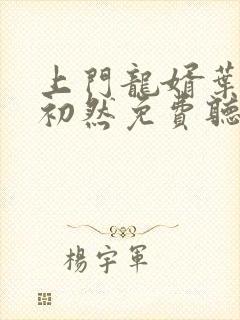 上門龍婿葉
初然免費聽
楊宇軍